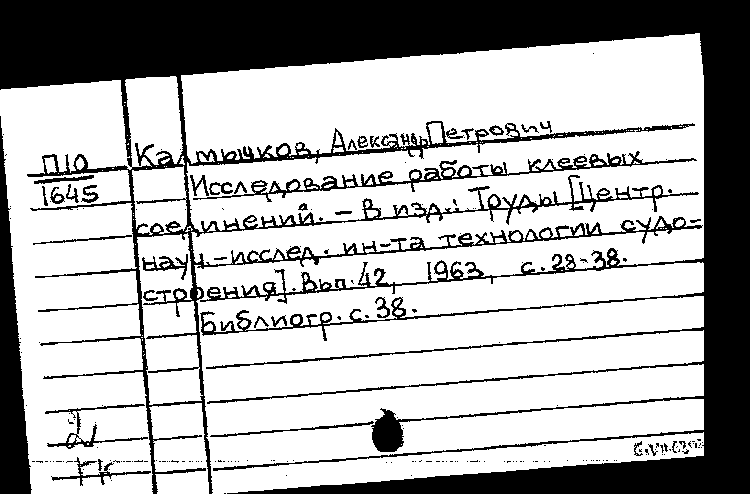 П10
1645
Калмычков, Александр Петрович
Исследование работы клеевых
соединений. – В изд.: Труды [Центр.
науч.-исслед. ин-та технологии судо=
строения]. Вып. 42, 1963, с. 28-38.
Библиогр. с. 38.
2
ГК